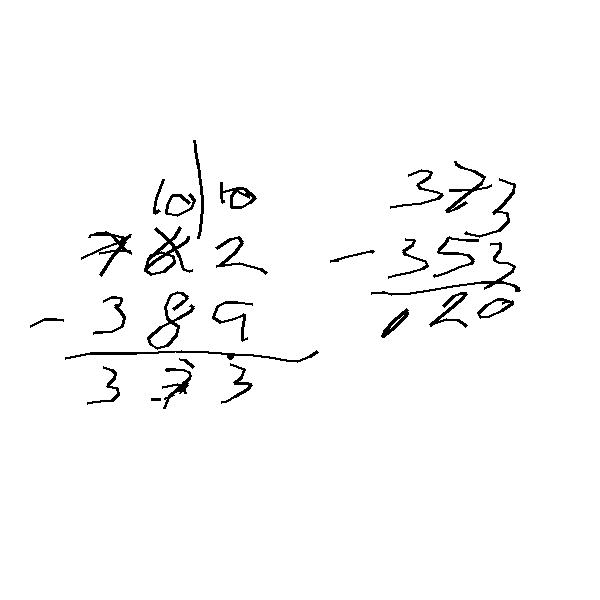 10 10
762
- 389
373
373
- 353
020